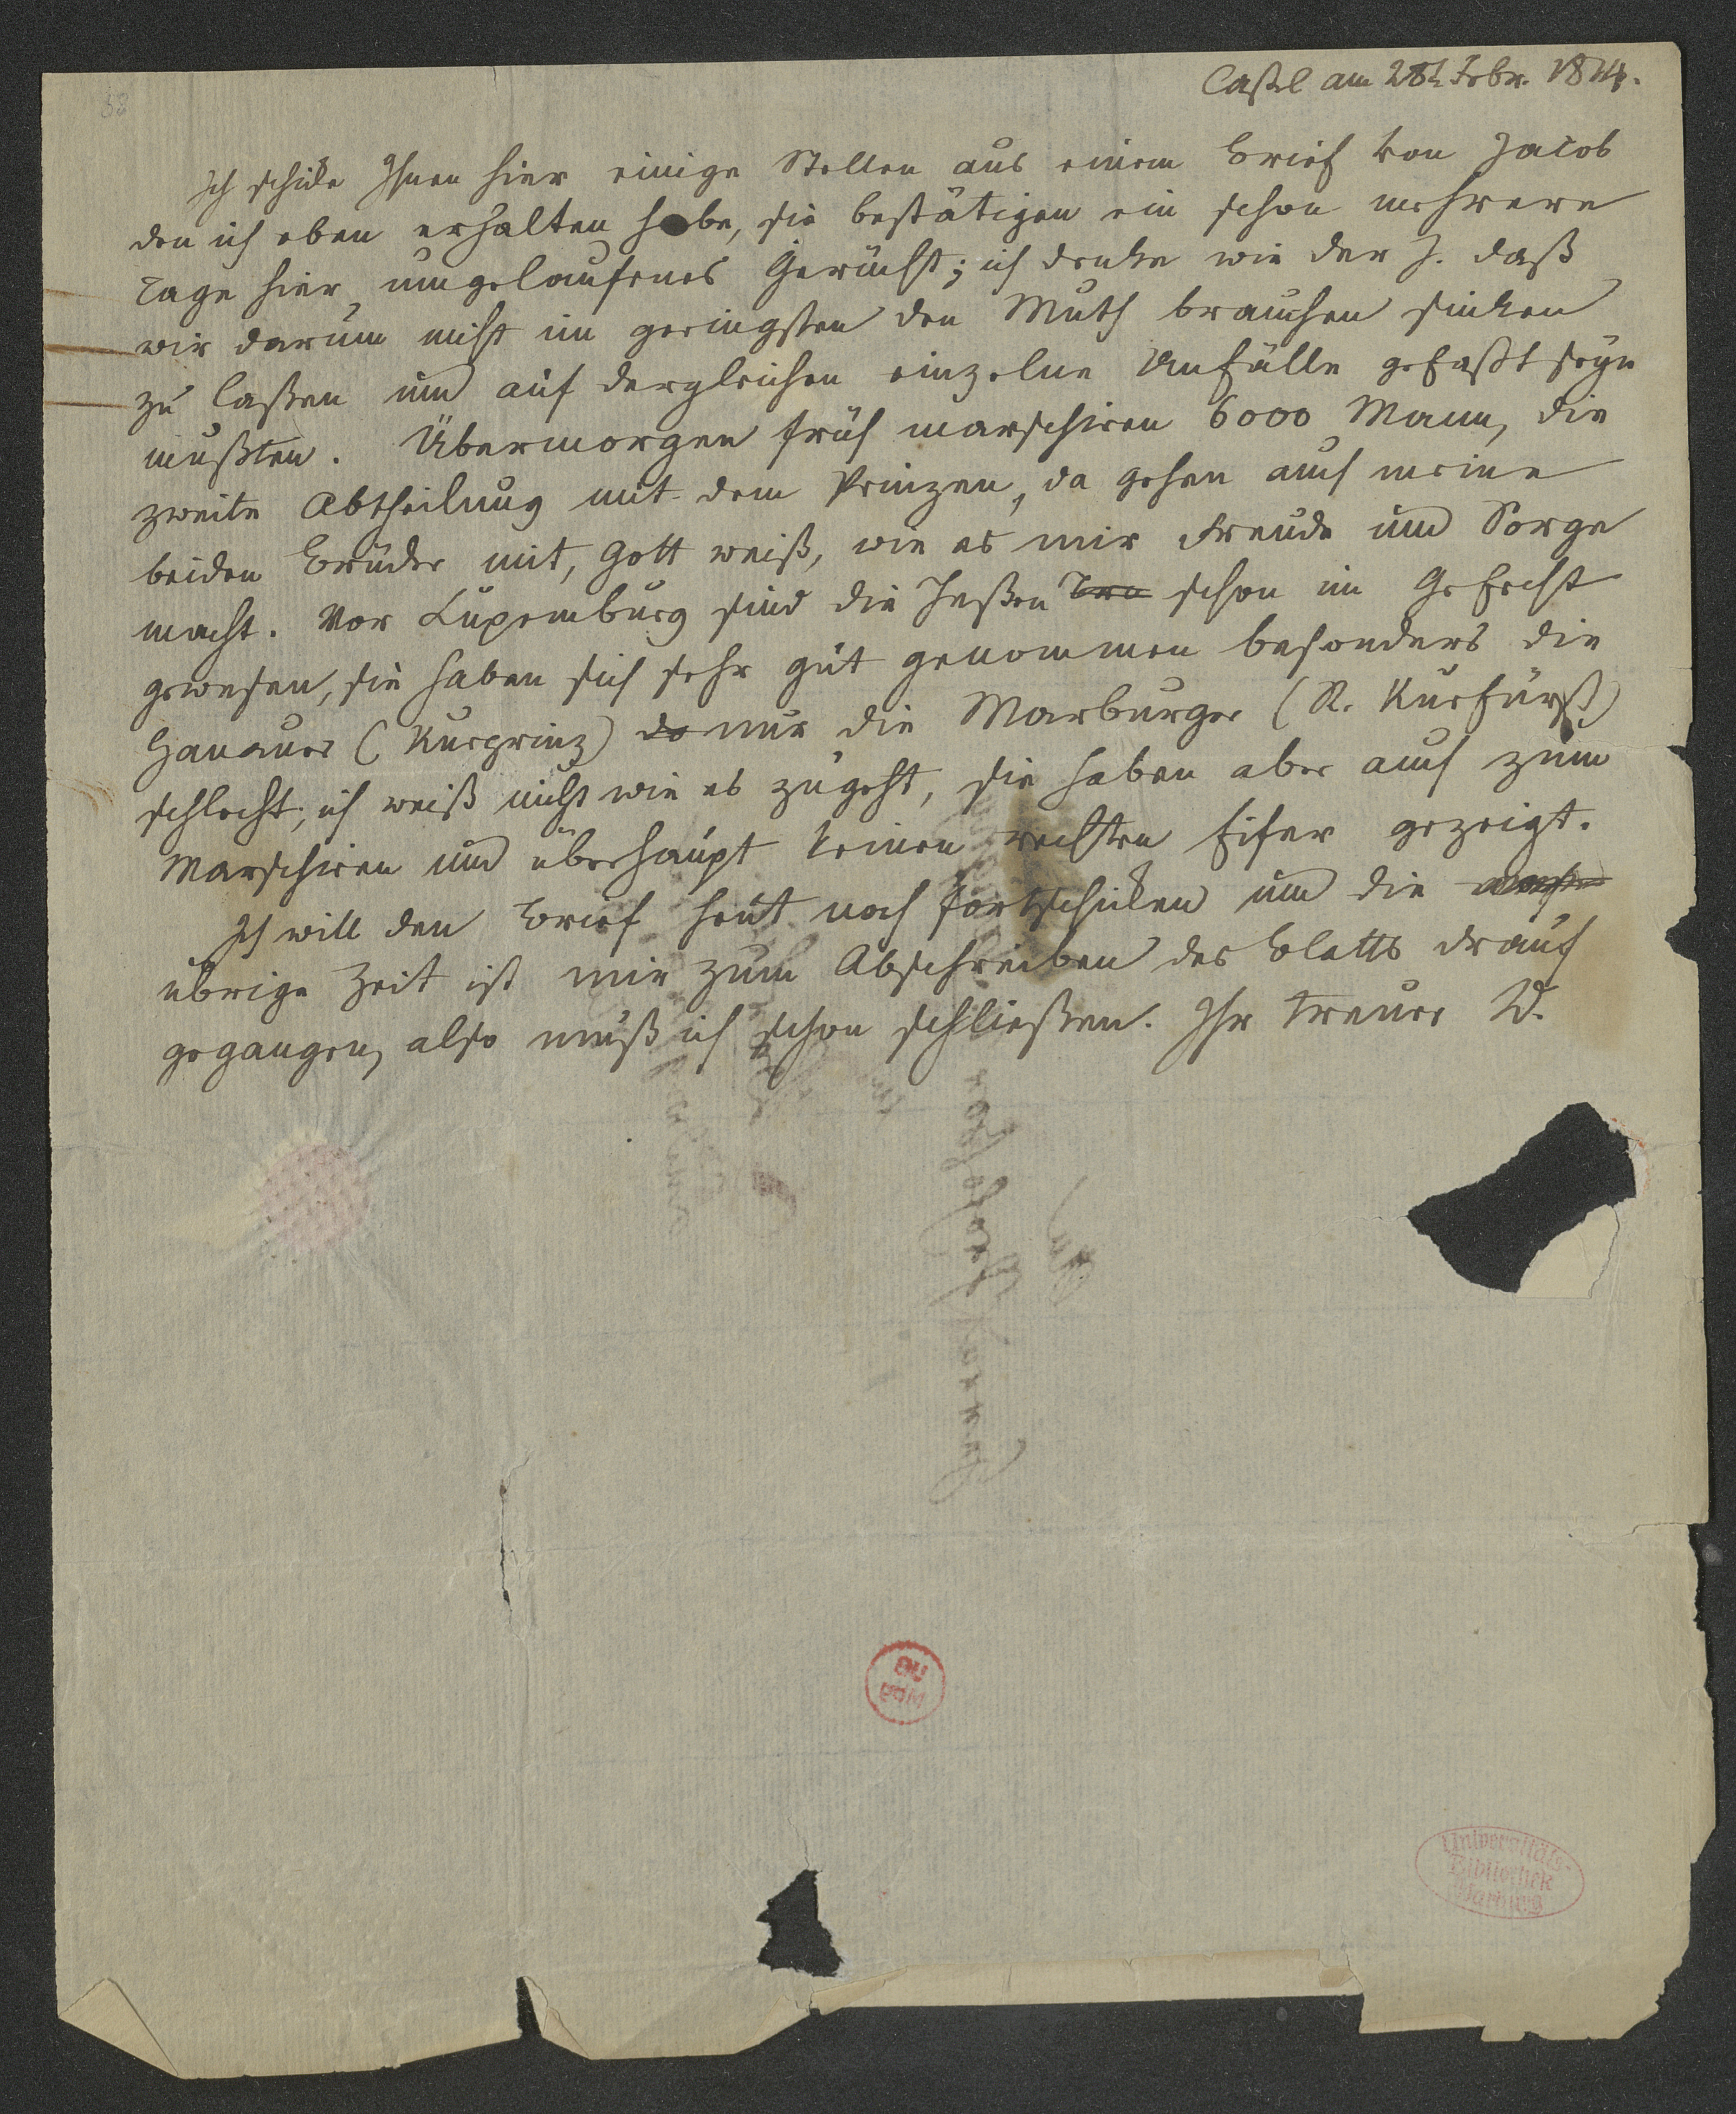 58
Caßel am 28t Febr. 1814.
Ich schicke Ihnen hier einige Stellen aus einem Brief von Jacob
den ich eben erhalten habe, sie bestätigen ein schon mehrere
Tage hier umgelaufenes Gerücht; ich denke wie der J. daß
wir darum nicht im geringsten den Muth brauchen sinken
zu laßen und auf dergleichen einzelne Unfälle gefaßt seyn
mußten. Übermorgen früh marschiren 6000 Mann, die
zweite Abtheilung mit dem Prinzen, da gehen auch meine
beiden Brüder mit, Gott weiß, wie es mir Freude und Sorge
macht. Vor Luxemburg sind die Heßen schon im Gefecht
gewesen, sie haben sich sehr gut genommen besonders die
Hanauer (Kurprinz) nur die Marburger (R. Kurfürst)
schlecht, ich weiß nicht wie es zugeht, sie haben aber auch zum
Marschiren und überhaupt keinen rechten Eifer gezeigt.
Ich will den Brief heut noch fortschicken und die
übrige Zeit ist mir zum Abschreiben des Blatts drauf
gegangen, also muß ich schon schließen. Ihr treuer W.
Universitäts-
Bibliothek
Marburg